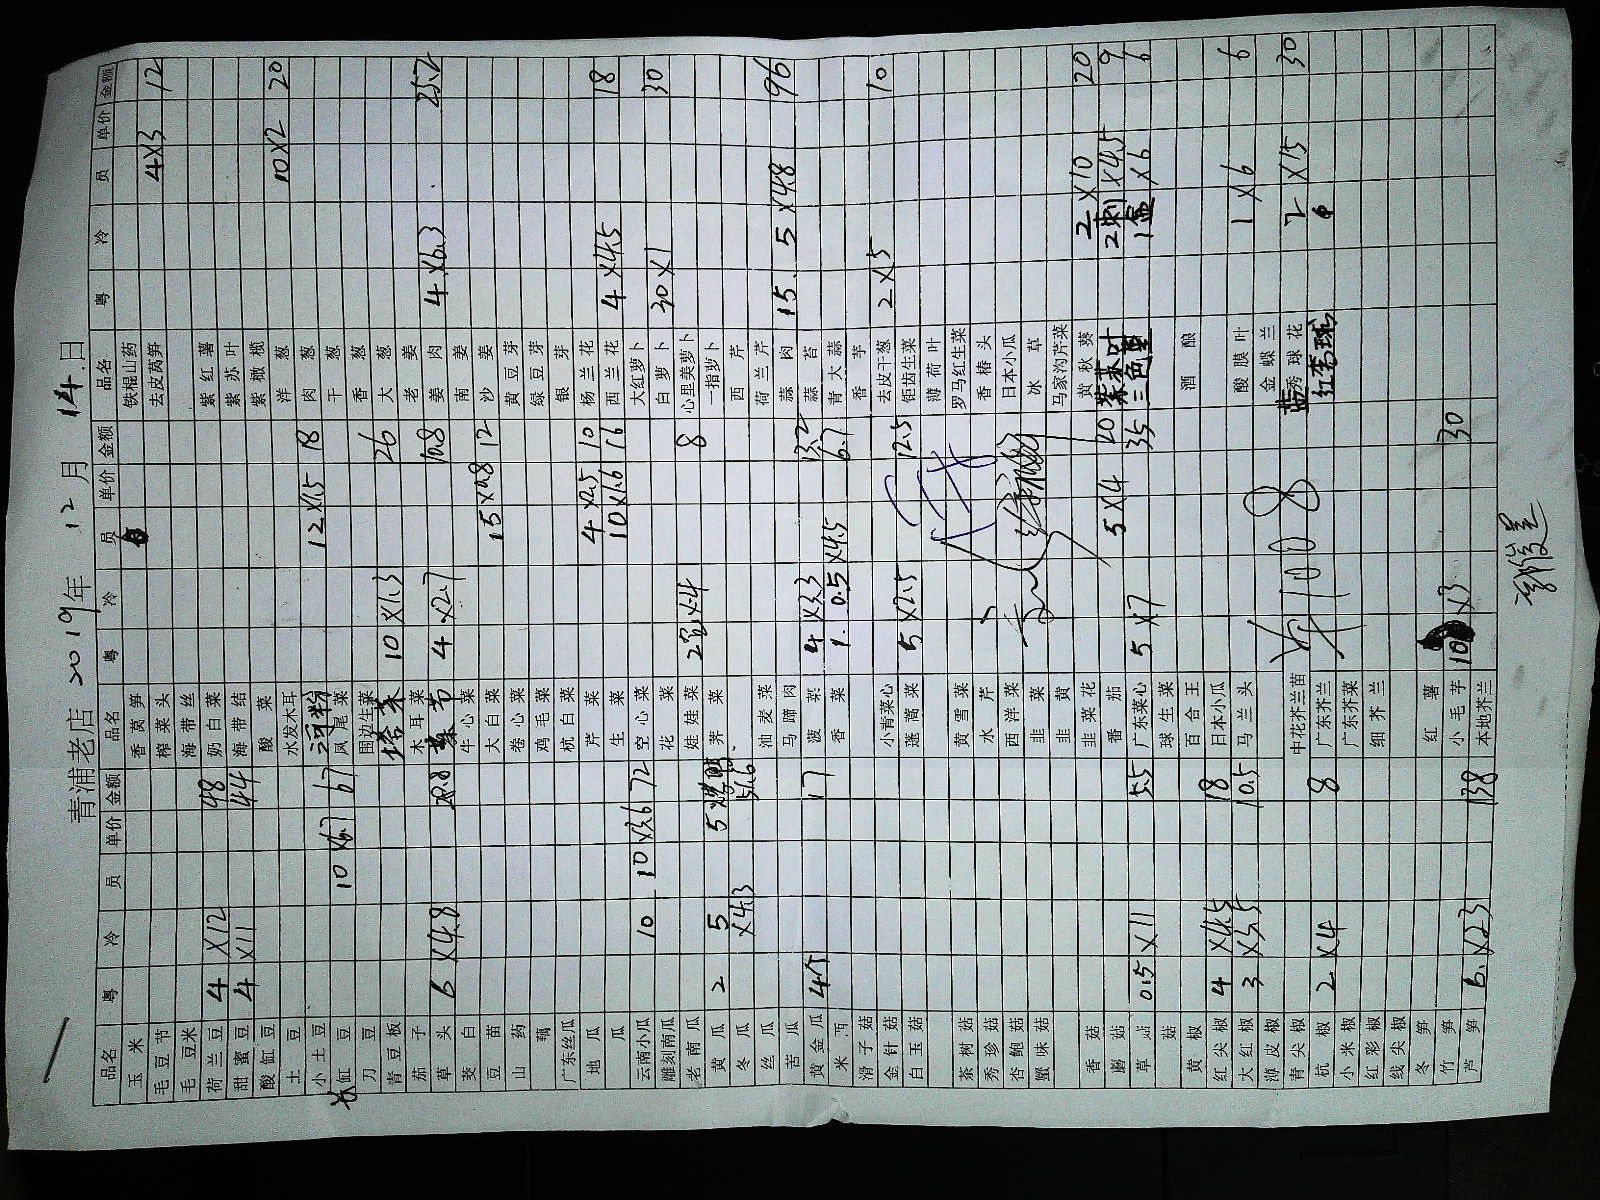 青浦老店 2019年 12月 14日
品名 粤 冷 员 单价 金额 品名 粤 冷 员 单价 金额 品名 粤 冷 员 单价 金额
玉米 香莴笋 铁棍山药
毛豆节 榨菜头 去皮莴笋 4×3 12
毛豆米 海带丝
荷兰豆 4 ×12 48 奶白菜 紫红薯
甜蜜豆 4 ×11 44 海带结 紫苏叶
酸缸豆 酸菜 紫橄榄
土豆 水发木耳 洋葱 10×2 20
小土豆 河粉 12×1.5 18 肉葱
缸豆 10×6.7 67 凤尾菜 干葱
刀豆 围边生菜 香葱
青豆板 塔菜 10×1.3 26 大葱
茄子 木耳菜 老姜
草头 6×4.8 28.8 4×2.7 10.8 姜肉 4×6.3 25.2
茭白 牛心菜 南姜
豆苗 大白菜 15×0.8 12 沙姜
山药 卷心菜 黄豆芽
藕 鸡毛菜 绿豆芽
广东丝瓜 杭白菜 银芽
地瓜 芹菜 4×2.5 10 杨兰花
瓜 生菜 10×1.6 16 西兰花 4×4.5 18
云南小瓜 10 10×3.6 72 空心菜 大红萝卜
雕刻南瓜 花菜 白萝卜 30×1 30
老南瓜 娃娃菜 2包×4 8 心里美萝卜
黄瓜 2 5 5 荠菜 一指萝卜
冬瓜 ×4.3 51.6 西芹
丝瓜 油麦菜 荷兰芹
苦瓜 马蹄肉 蒜肉 15 5×4.8 96
黄金瓜 4个 17 菠菜 4×3.3 13.2 蒜苔
米西 香菜 1 0.5×4.5 6.7 青大蒜
滑子菇 香芋
金针菇 小青菜心 去皮干葱 2×5 10
白玉菇 蓬蒿菜 5×2.5 12.5 钜齿生菜
薄荷叶
茶树菇 黄雪菜 罗马红生菜
秀珍菇 水芹 香椿头
杏鲍菇 西洋菜 日本小瓜
蟹味菇 韭菜 冰草
韭黄 马家沟芹菜
香菇 韭菜花 黄秋葵 2×10 20
蘑菇 番茄 5×4 20 苏叶 2刺×4.5 9
草菇 0.5×11 5.5 广东菜心 5×7 35 三色堇 1盒×6 6
菇 球生菜
黄椒 百合王 酒酿
红尖椒 4×4.5 18 日本小瓜
大红椒 3×3.5 10.5 马兰头 酸膜叶 1×6 6
薄皮椒 金蝶兰
青尖椒 中花芥兰苗 蓝秀球花 2×15 30
杭椒 2×4 8 广东芥兰
小米椒 广东芥菜
红彩椒 细芥兰
线尖椒
冬笋 红薯
竹笋 小毛芋 10×3 30
芦笋 6×23 138 本地芥兰
1108